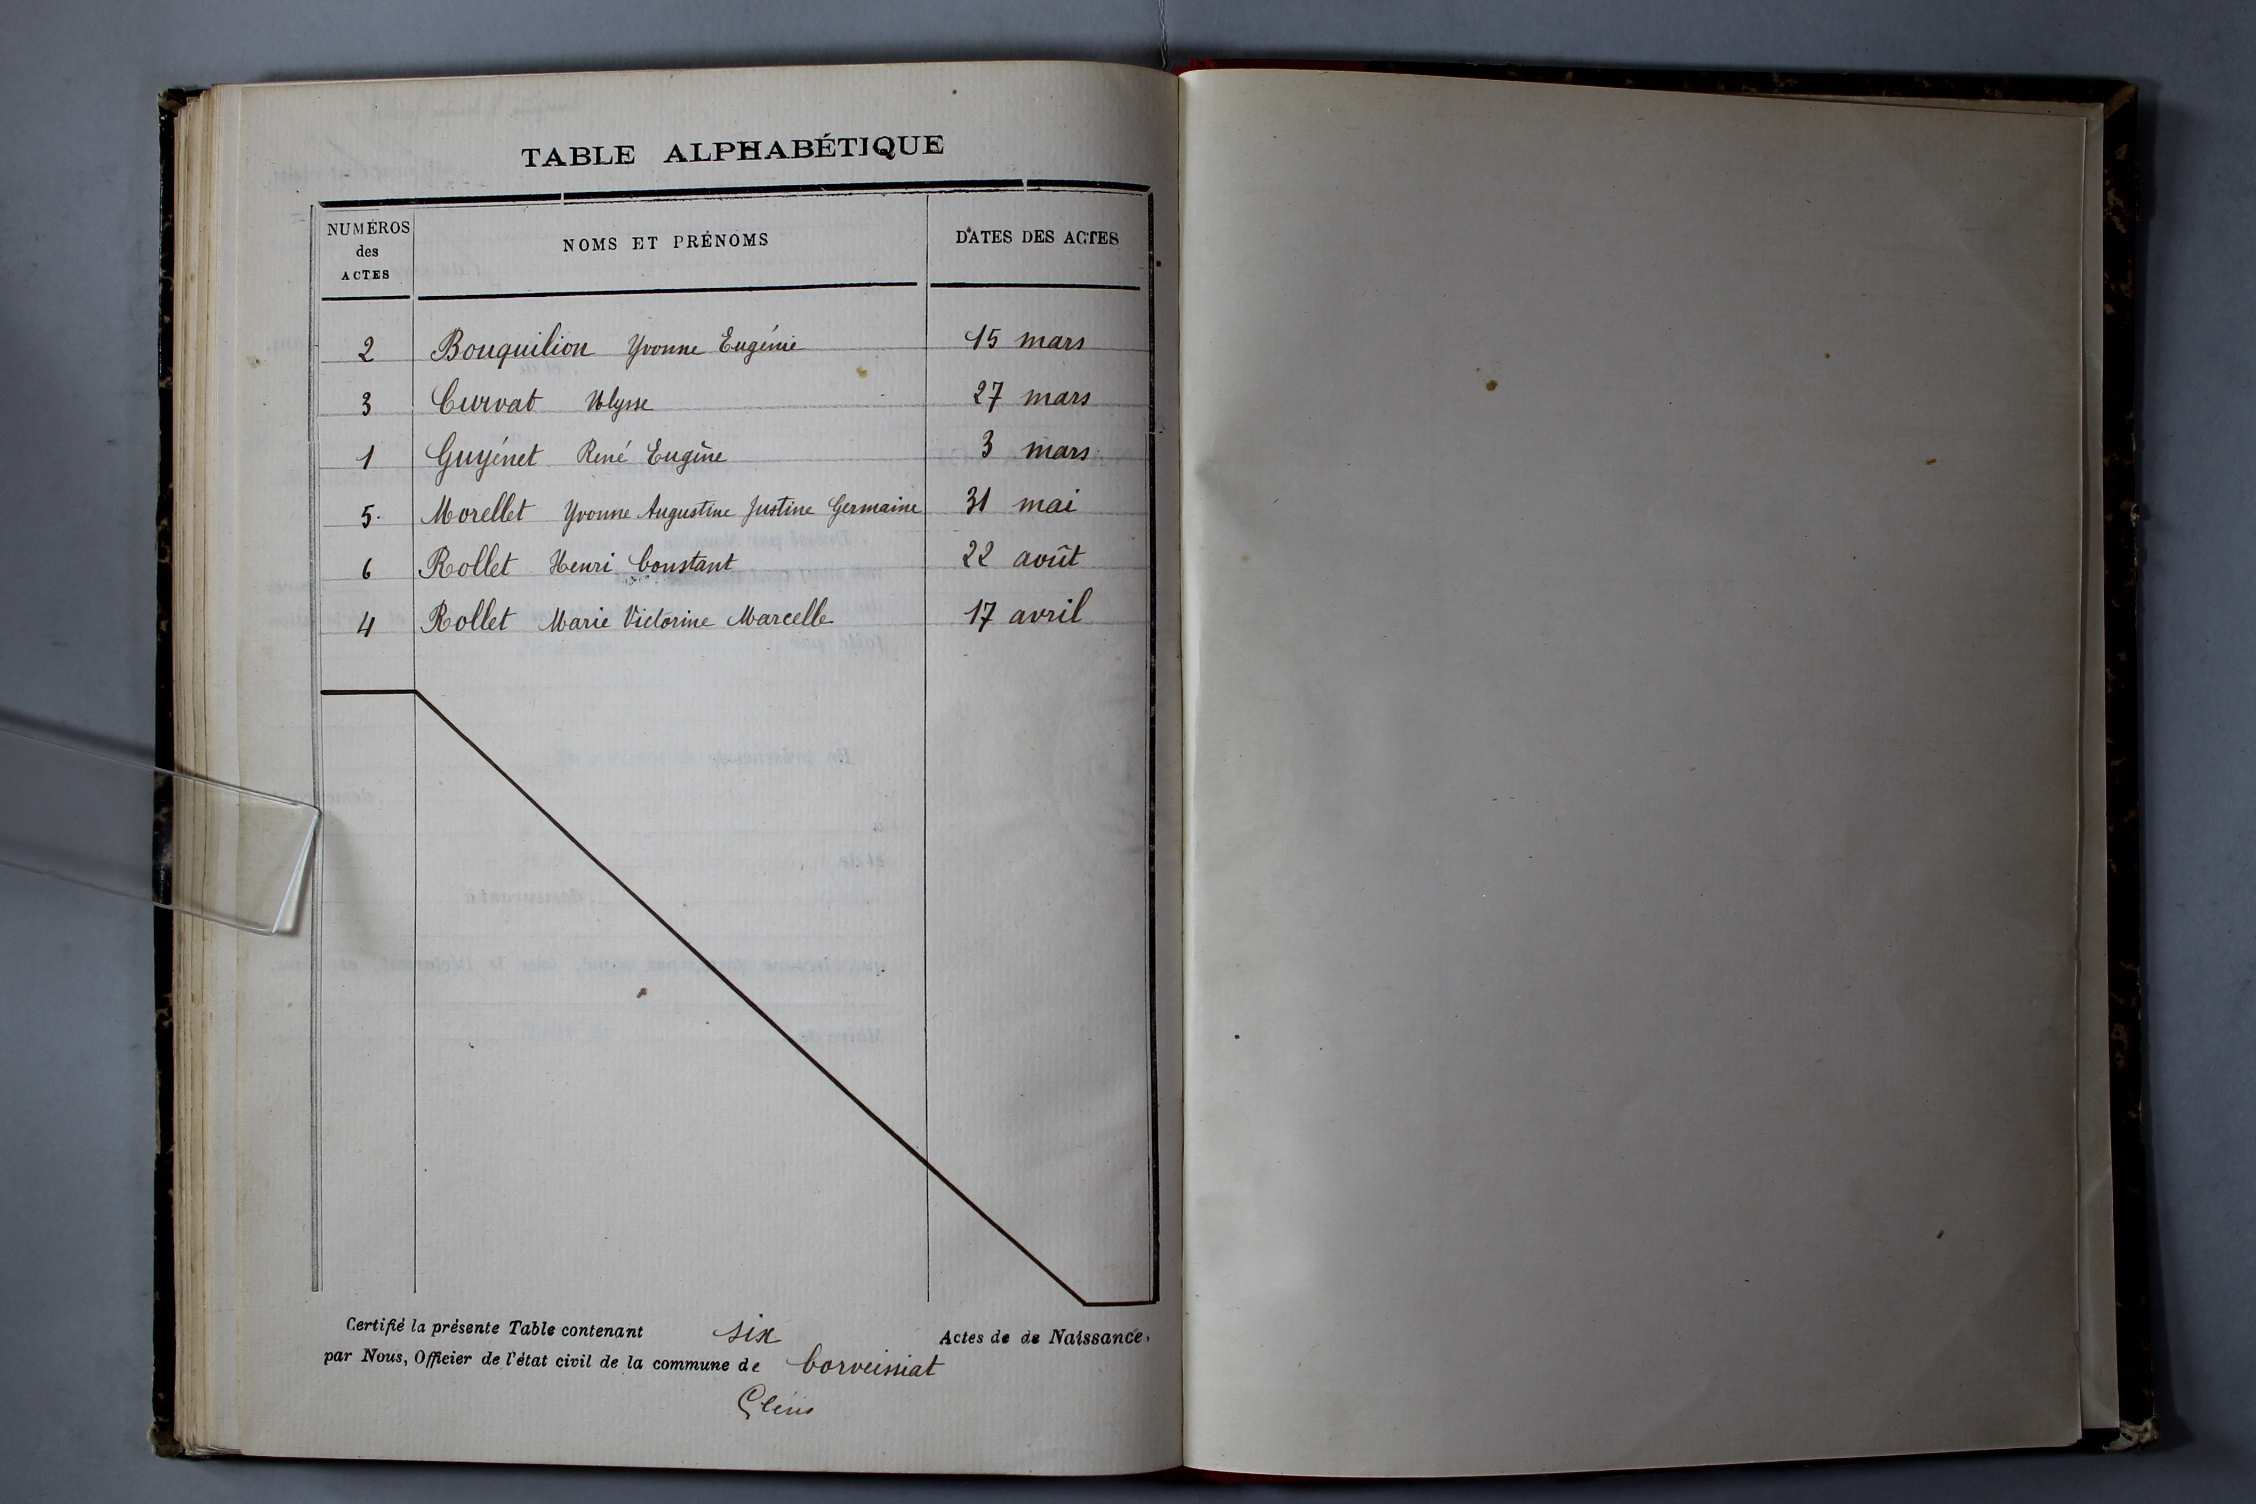 TABLE ALPHABÉTIQUE
NUMÉROS des ACTES NOMS ET PRÉNOMS DATES DES ACTES
2 Bouquilion Yvonne Eugénie 15 mars
3 Curvat Ulysse 27 mars
1 Guyénet René Eugène 3 mars
5 Morellet Yvonne Augustine Justine Germaine 31 mai
6 Rollet Henri Constant 22 août
4 Rollet Marie Victorine Marcelle 17 avril
Certifié la présente Table contenant six Actes de de Naissance,
par Nous, Officier de l'état civil de la commune de Corveissiat